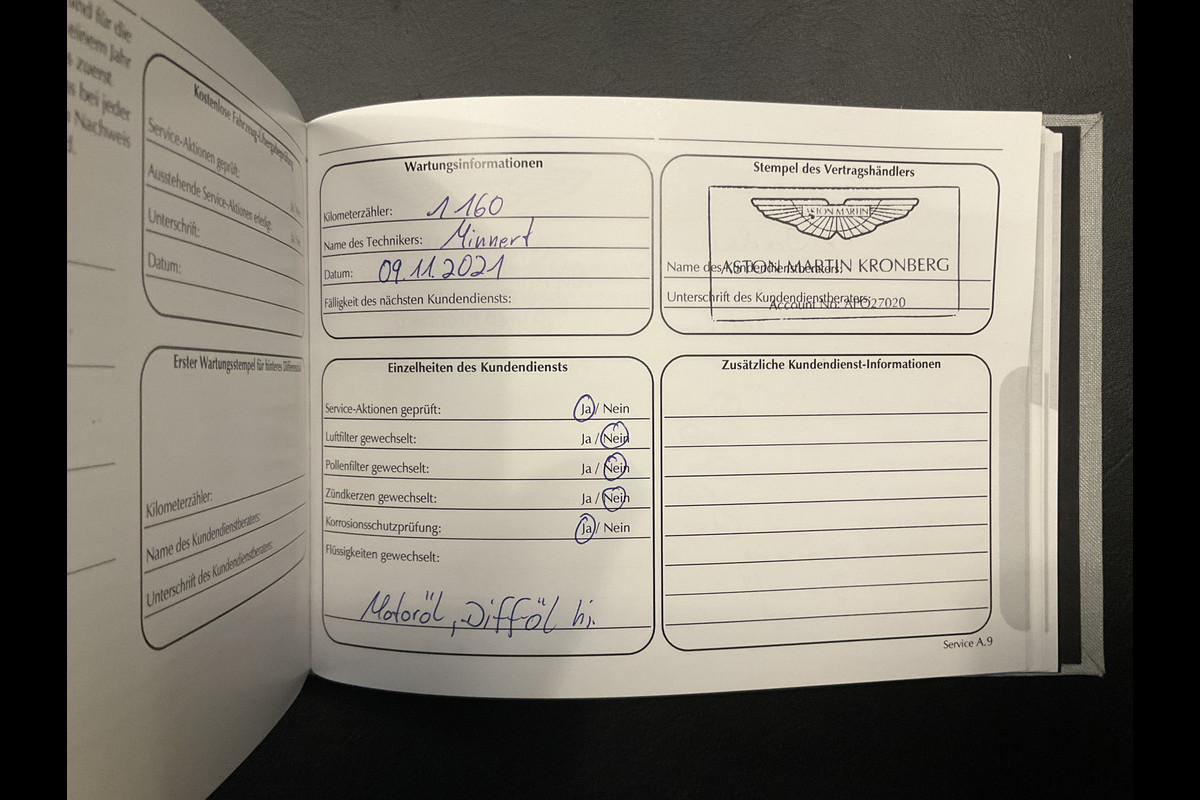 und für die
einem Jahr
zuerst.
bei jeder
Nachweis
Kostenlose Fahrzeug-Übergabeprüfung
Service-Aktionen geprüft:
Ausstehende Service-Aktionen erledigt:
Unterschrift:
Datum:
Erster Wartungsstempel für hinteres
Kilometerzähler:
Name des Kundendienstberaters:
Unterschrift des Kundendienstberaters:
Wartungsinformationen
Kilometerzähler: 1 160
Name des Technikers: Minnert
Datum: 09.11.2021
Fälligkeit des nächsten Kundendiensts:
Stempel des Vertragshändlers
ASTON MARTIN
Name des Kundendienstberaters:
ASTON MARTIN KRONBERG
Unterschrift des Kundendienstberaters:
Account No: APO27020
Einzelheiten des Kundendiensts
Service-Aktionen geprüft: Ja / Nein
Luftfilter gewechselt: Ja / Nein
Pollenfilter gewechselt: Ja / Nein
Zündkerzen gewechselt: Ja / Nein
Korrosionsschutzprüfung: Ja / Nein
Flüssigkeiten gewechselt:
Motoröl, Difföl hi.
Zusätzliche Kundendienst-Informationen
Service A.9